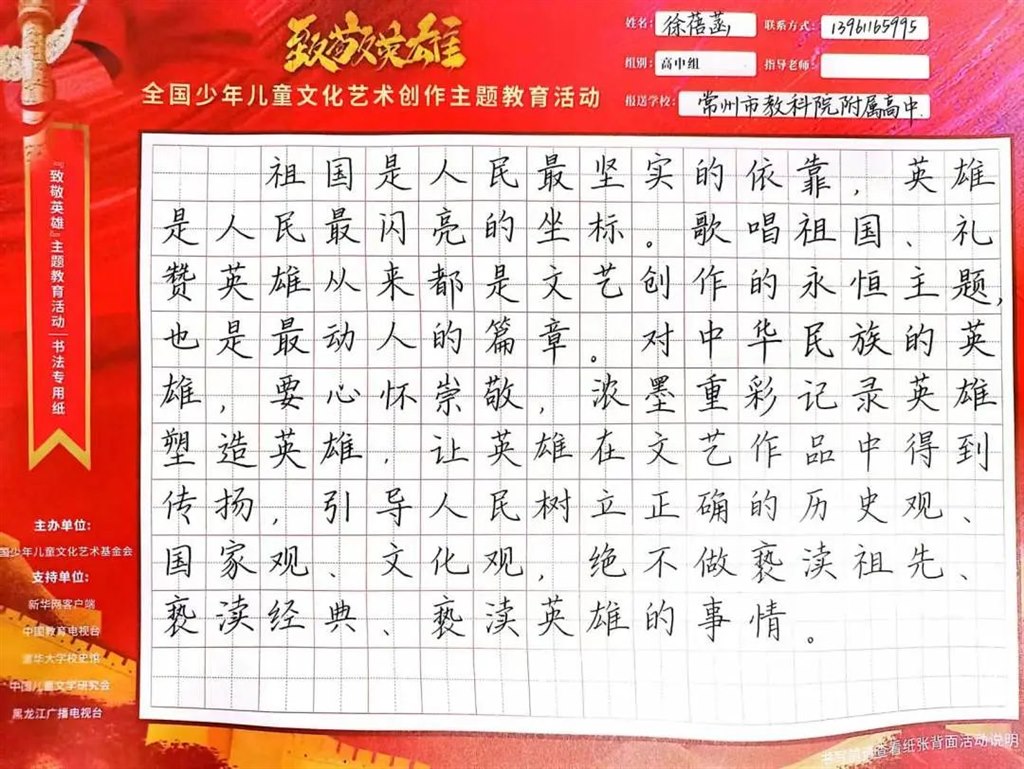 致敬英雄
全国少年儿童文化艺术创作主题教育活动
姓名: 徐蓓菡 联系方式: 13961165995
组别: 高中组 指导老师:
报送学校: 常州市教科院附属高中
『致敬英雄』主题教育活动|书法专用纸
祖国是人民最坚实的依靠，英雄
是人民最闪亮的坐标。歌唱祖国、礼
赞英雄从来都是文艺创作的永恒主题，
也是最动人的篇章。对中华民族的英
雄，要心怀崇敬，浓墨重彩记录英雄
塑造英雄，让英雄在文艺作品中得到
传扬，引导人民树立正确的历史观、
国家观、文化观，绝不做亵渎祖先、
亵渎经典、亵渎英雄的事情。
主办单位:
国少年儿童文化艺术基金会
支持单位:
新华网客户端
中国教育电视台
清华大学校史馆
中国儿童文学研究会
黑龙江广播电视台
查看纸张背面活动说明